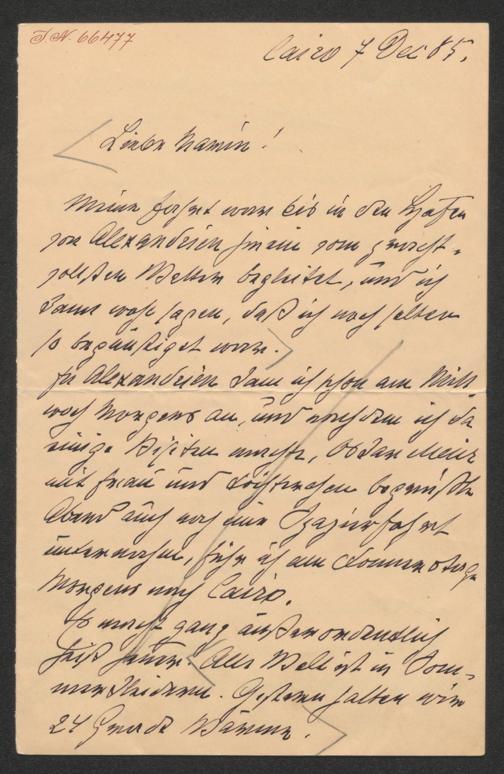 J.N. 66477
Cairo 7 Dec 85.
Liebe Mamin!
Meine Fahrt war bis in den Hafen
von Alexandrien hinein vom pracht-
vollsten Wetter begleitet, und ich
kann wohl sagen, daß ich noch selten
so begünstigt war.
In Alexandrien kam ich schon am Mitt
woch Morgens an, und nachdem ich da
einige Visiten machte, Oskar Meir
mit Frau und begrüßte
Abend auch noch eine Spazierfahrt
unternahm, fuhr ich am Donnerstage
Morgens nach Cairo.
Es macht ganz außerordentlich
heiß hier. Alle Welt ist in Som-
merkleidern. Gestern hatten wir
24 Grade Wärme.